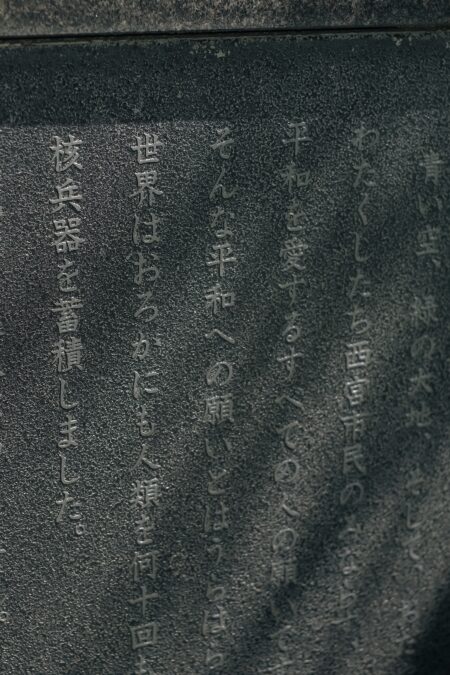 青い空、緑の大地、そして、
わたくしたち西宮市民の
平和を愛するすべての
そんな平和への願いとはうらはら
世界はおろかにも人類を何十回も
核兵器を蓄積しました。